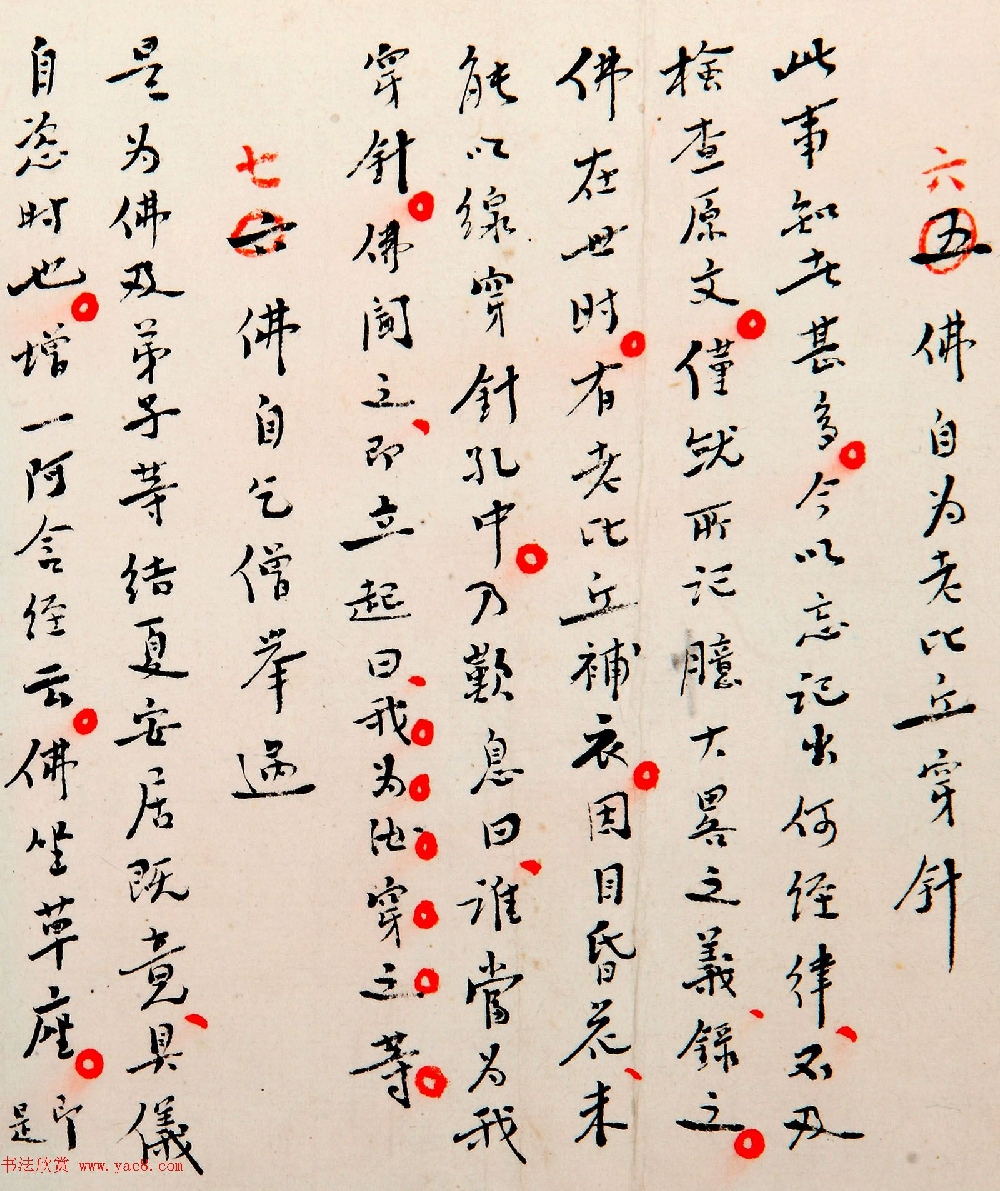 六五 佛自为老比丘穿針
此事知者甚多。今以忘记出何经律、不及
檢查原文。僅就所记臆大畧之義、錄之。
佛在世时。有老比丘補衣。因目昏花、未
能以線穿針孔中。乃歎息曰、谁當为我
穿針。佛闻之、即立起曰、我为汝穿之等。
七六 佛自乞僧举過
是为佛及弟子等结夏安居既竟、具儀
自恣时也。增一阿含经云。佛坐草座。即
是
书法欣赏 www.yac8.com